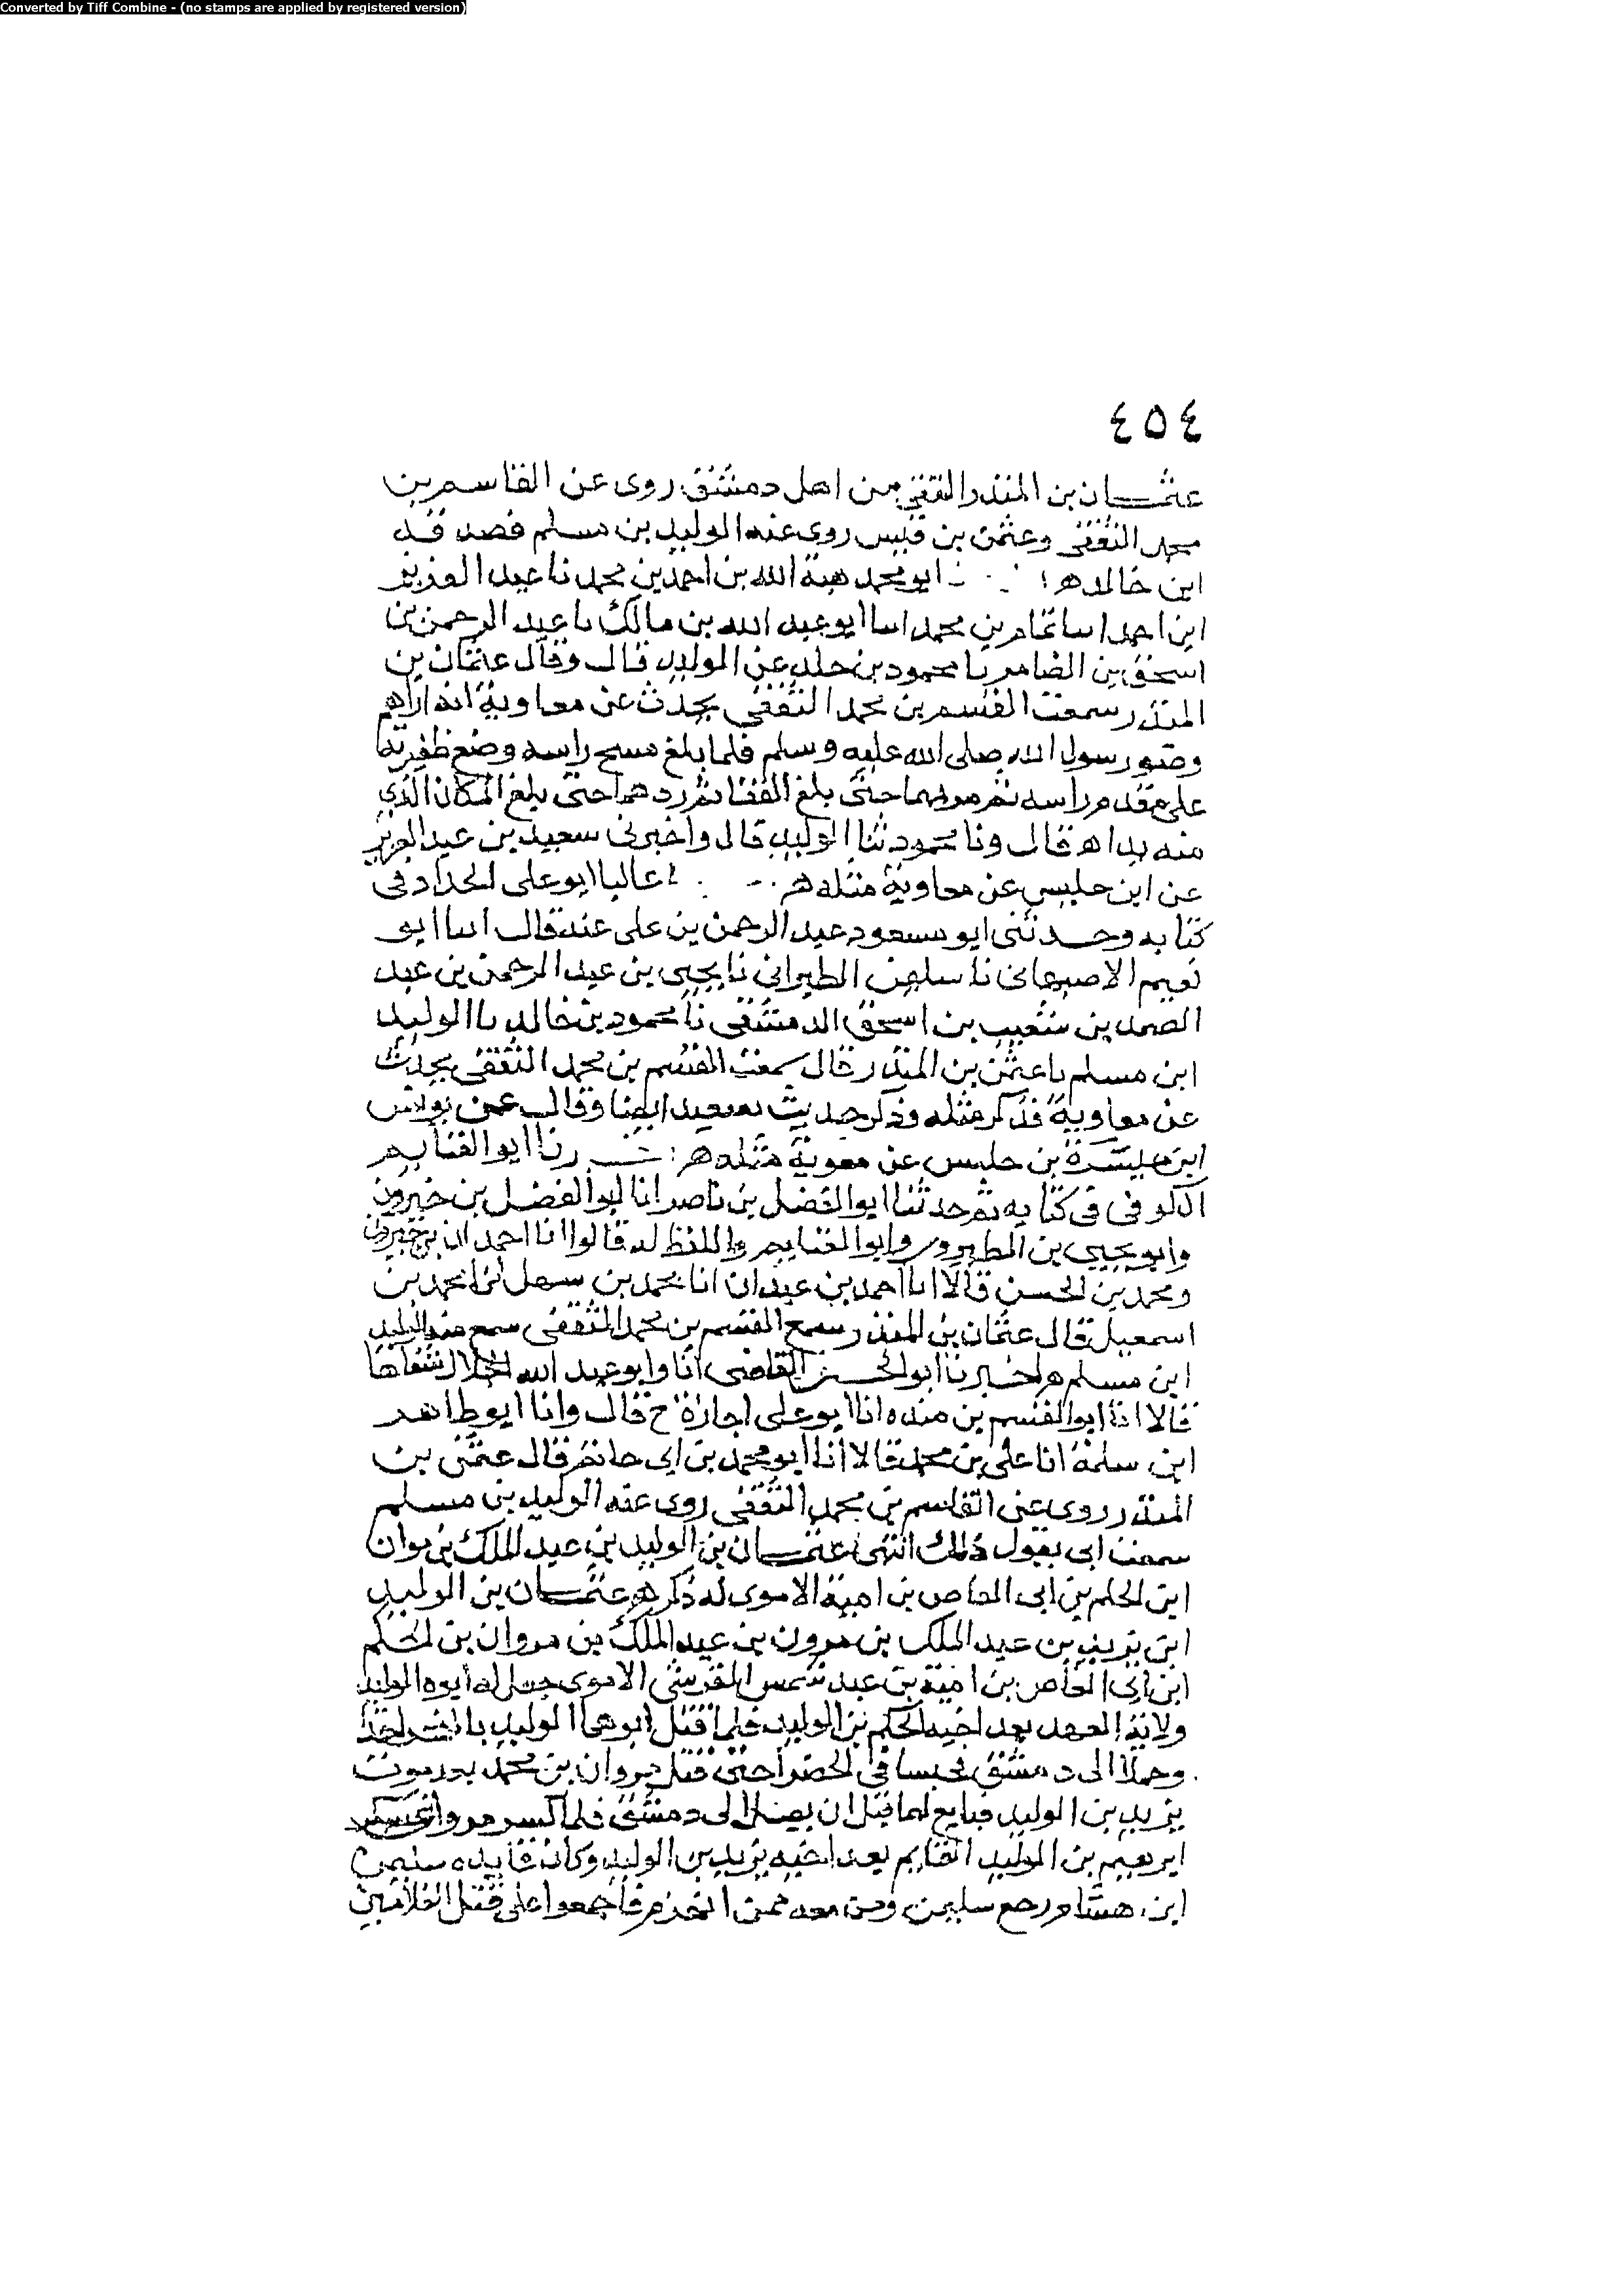 Converted by Tiff Combine - (no stamps are applied by registered version)
٤٥٤
عثمــان بن المنذر الثقفي من اهل دمشق روى عن القاسم بن
محمد الثقفى وعثمن بن قيس روى عنه الوليد بن مسلم
ابن خالد هـ ابو محمد هبة الله بن احمد بن محمد نا عبد العزيز
ابن احمد انبا تمام بن محمد انبا ابو عبد الله بن مالك نا عبد الرحمن بن
اسحق بن الضامر نا محمود بن خلد عن الوليد قال وقال عثمان بن
المنذر سمعت القسم بن محمد الثقفى يحدث عن معاوية انه اراهم
وضو رسول الله صلى الله عليه وسلم فلما بلغ مسح راسه وضع
على مقدم راسه ثم مر بهما حتى بلغ القفا ثم ردهما حتى بلغ المكان الذي
منه بدا هـ قال ونا محمود ثنا الوليد قال واخبرنى سعيد بن عبد العزيز
عن ابن حليس عن معاوية مثله هـ عاليا ابو على الحداد فى
كتابه وحدثنى ابو مسعود عبد الرحمن بن على عنه قال انبا ابو
نعيم الاصبهانى نا سليمن الطبرانى نا يحيى بن عبد الرحمن بن عبد
الصمد بن شعيب بن اسحق الدمشقى نا محمود بن خالد نا الوليد
ابن مسلم نا عثمن بن المنذر قال سمعت القسم بن محمد الثقفى يحدث
عن معاوية فذكر مثله وذكر حديث سعيد ايضا وقال عن يونس
ابن ميسرة بن حليس عن معوية مثله هـ ابو الغنايم
الكوفى فى كتابه ثم حدثنا ابو الفضل بن ناصر انا ابو الفضل بن خيرون
وابو الغنايم واللفظ له قالوا انا احمد ان بن خيرون
ومحمد بن الحسن قالا انا احمد بن عبدان انا محمد بن سهل انا محمد بن
اسمعيل قال عثمان بن المنذر سمع القسم بن محمد الثقفى سمع منه الوليد
ابن مسلم هـ اخبرنا ابو الحسن القاضى انا وابو عبد الله الخلال شفاها
قالا انا ابو القسم بن منده انا ابو على اجازة ح قال وانا ابو طاهر
ابن سلمة انا على بن محمد قالا انا ابو محمد بن ابى حاتم قال عثمن بن
المنذر روى عن القاسم بن محمد الثقفى روى عنه الوليد بن مسلم
سمعت ابى يقول ذلك انتهى عثمــان بن الوليد بن عبد الملك بن مروان
ابن الحكم بن ابى العاص بن امية الاموى له ذكر هـ عثمــان بن الوليد
ابن يزيد بن عبد الملك بن مرون بن عبد الملك بن مروان بن الحكم
ابن ابى العاص بن امية بن عبد شمس القرشى الاموى جعل له ابوه الوليد
ولاية العهد بعد اخيه الحكم بن الوليد فلما قتل ابوهما الوليد
وحملا الى دمشق فحبسا فى الخضرا حتى قتل مروان بن محمد بعد موت
يزيد بن الوليد فبايع لهما قبل ان يصل الى دمشق فلما كسر مروان عسكر
ابرهيم بن الوليد القايم بعد اخيه يزيد بن الوليد وكان قايده سليمن
ابن هشام رجع سليمن ومن معه ممن انهزم فاجمعوا على قتل الغلامين